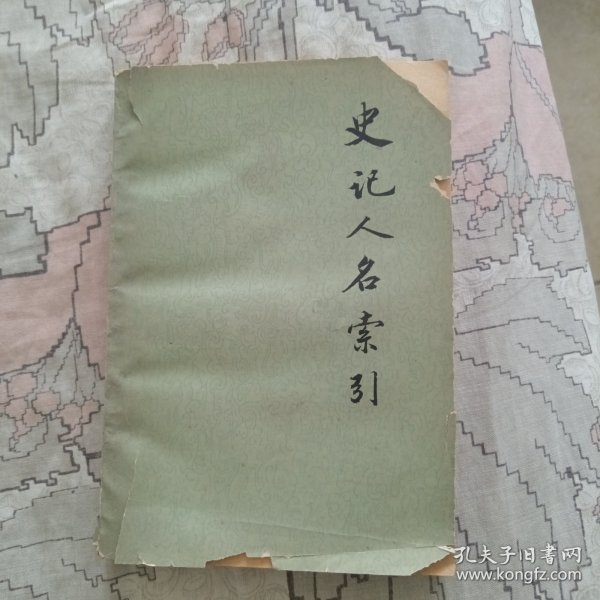 史记人名索引
孔夫子旧书网
www.kongfz.com